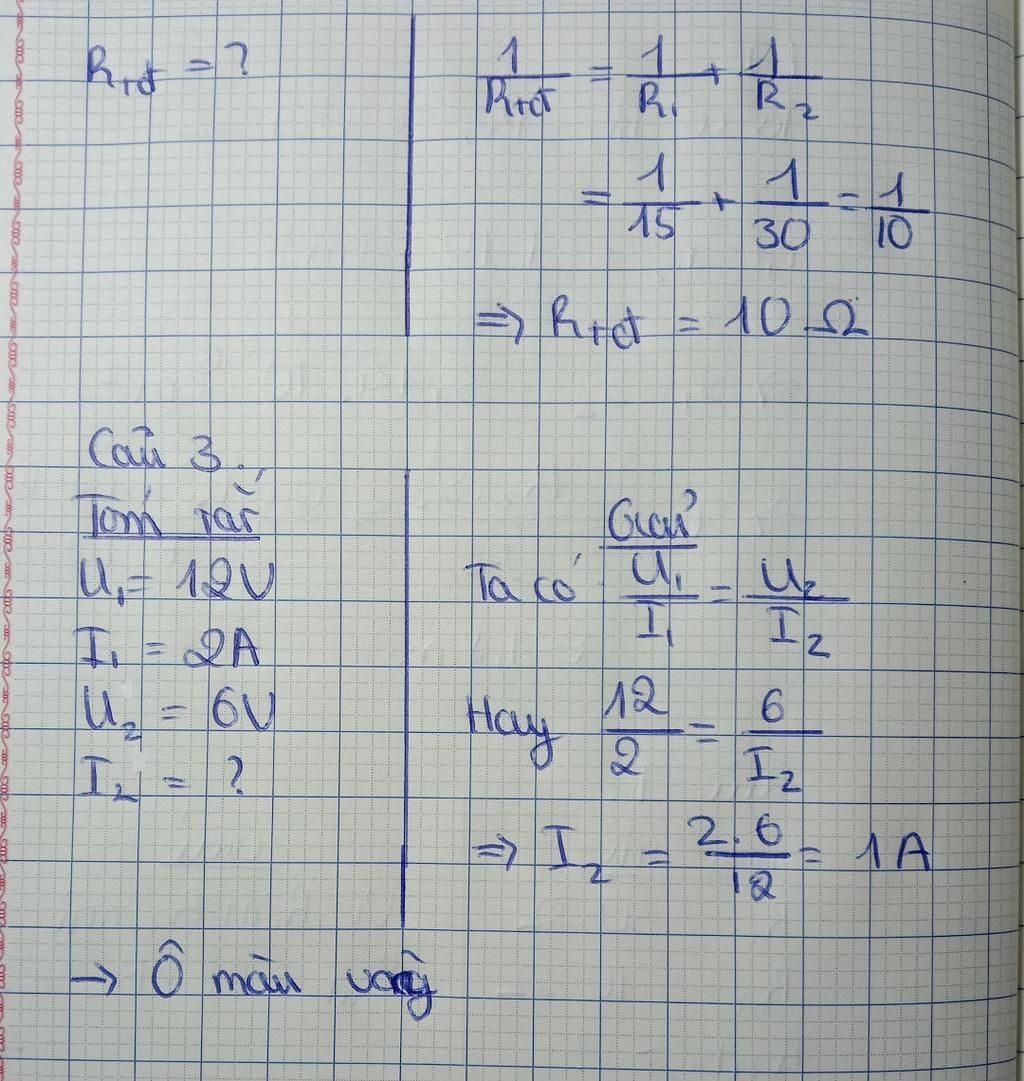 Rtđ = ?
1/Rtđ = 1/R₁ + 1/R₂
= 1/15 + 1/30 = 1/10
⇒ Rtđ = 10 Ω
Câu 3.
Tóm tắt
U₁ = 12V
I₁ = 2A
U₂ = 6V
I₂ = ?
Giải
Ta có U₁/I₁ = U₂/I₂
Hay 12/2 = 6/I₂
⇒ I₂ = 2.6/12 = 1A
→ Ô màu vàng